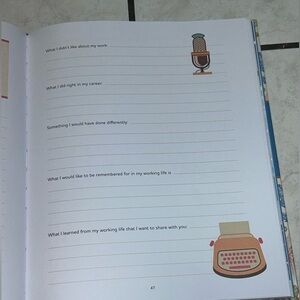 What I didn't like about my work
What I did right in my career
Something I would have done differently
What I would like to be remembered for in my working life is
What I learned from my working life that I want to share with you
47